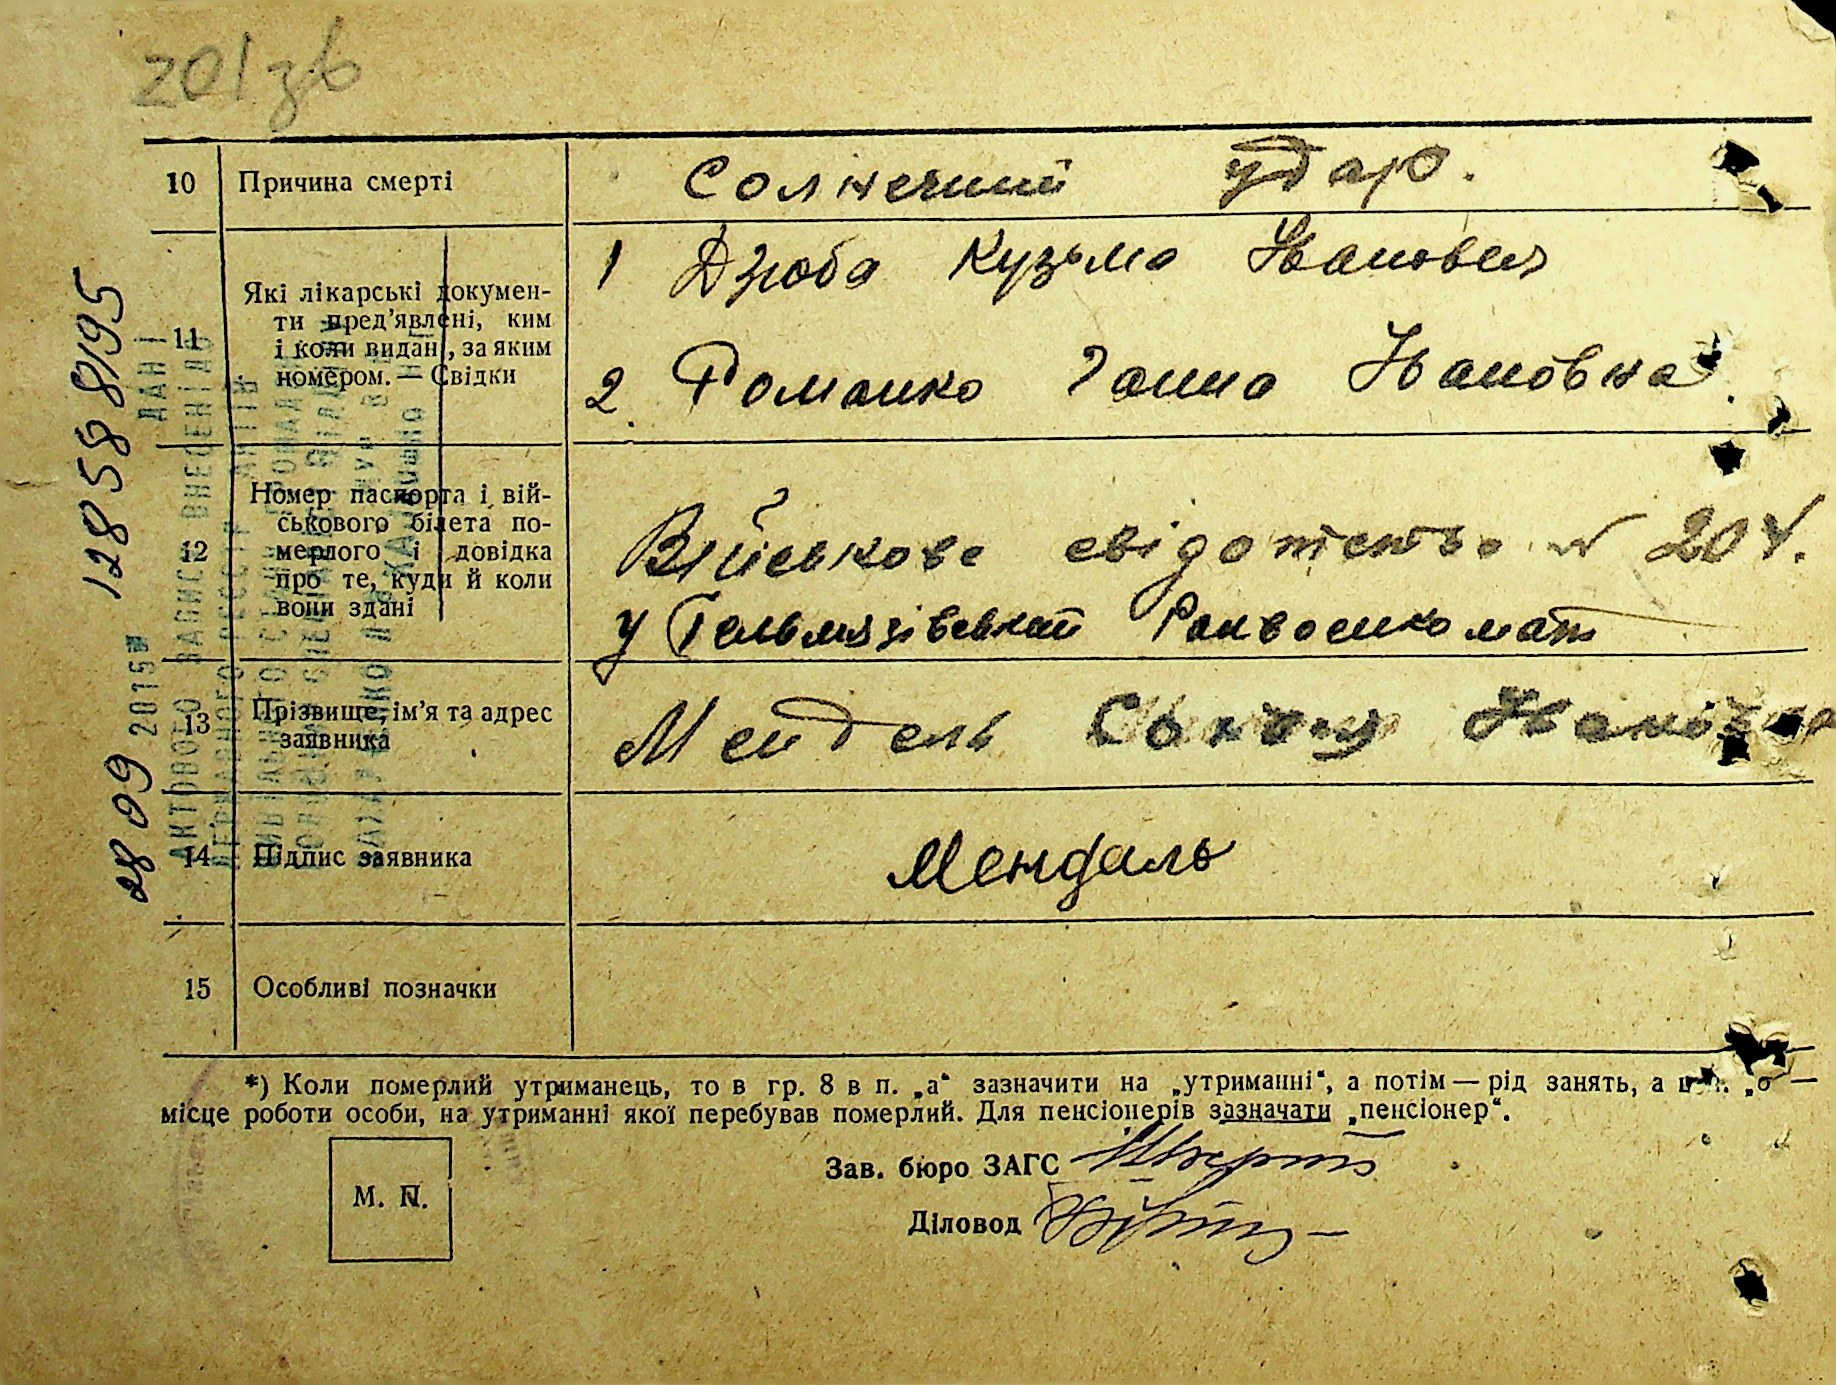 201 зв
10 Причина смерті Солнечний удар.
11 Які лікарські докумен-
ти пред'явлені, ким
і коли видані, за яким
номером. — Свідки
1 Дзюба Кузьма Іванович
2. Романко Ганна Івановка.
12 Номер паспорта і вій-
ськового білета по-
мерлого і довідка
про те, куди й коли
вони здані
Військове свідотство № 204.
у Гельмязівский Райвоенкомат
13 Прізвище, ім'я та адрес
заявника
Мендель
14 Підпис заявника Мендаль
15 Особливі позначки
*) Коли померлий утриманець, то в гр. 8 в п. „а“ зазначити на „утриманні“, а потім — рід занять, а —
місце роботи особи, на утриманні якої перебував померлий. Для пенсіонерів зазначати „пенсіонер“.
М. П.
Зав. бюро ЗАГС
Діловод
28 09 2015 12858195
ДАНІ
АКТОВОГО ЗАПИСУ ВНЕСЕНІ ДО